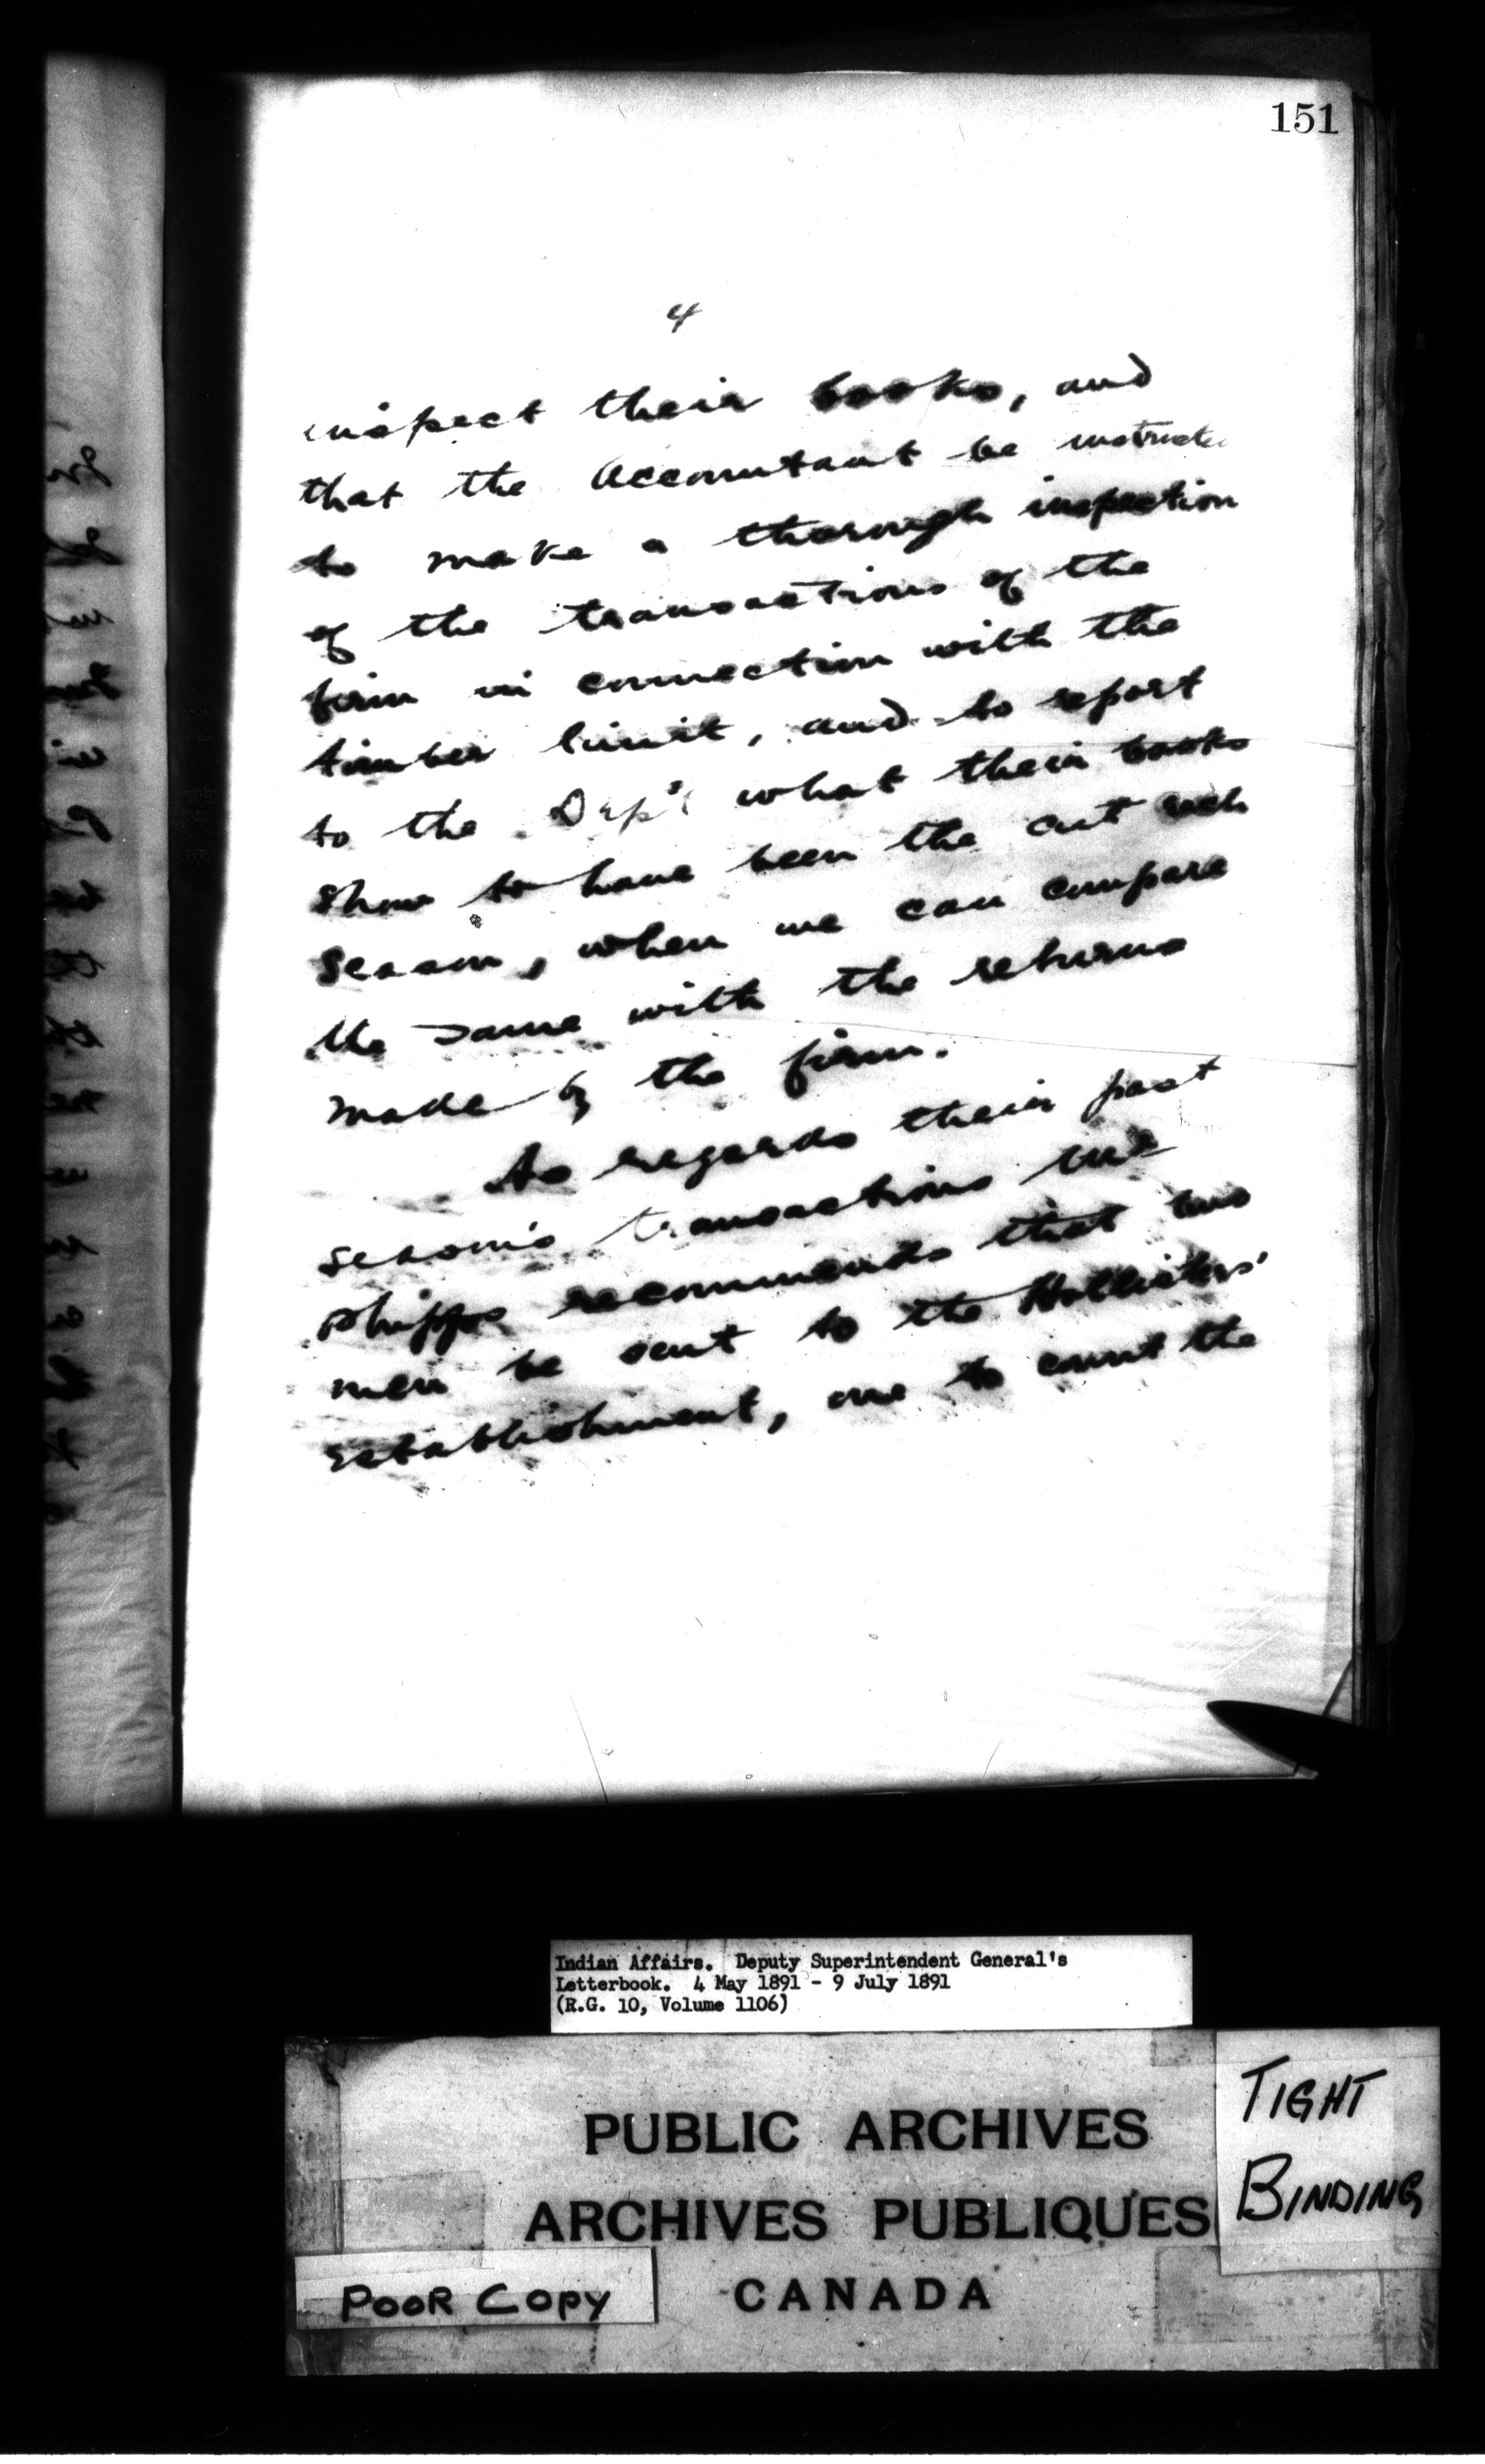 151
4
inspect their books, and
that the Accountant be instructed
to make a thorough inspection
of the transactions of the
firm in connection with the
timber limit, and to report
to the Dep't what their books
show to have been the cut each
season, when we can compare
the same with the returns
made by the firm.
As regards their past
season's transactions Mr
Phipps recommends that two
men be sent to the Hollisters'
establishment, one to count the
Indian Affairs. Deputy Superintendent General's
Letterbook. 4 May 1891 - 9 July 1891
(R.G. 10, Volume 1106)
PUBLIC ARCHIVES
ARCHIVES PUBLIQUES
CANADA
TIGHT
BINDING
POOR COPY